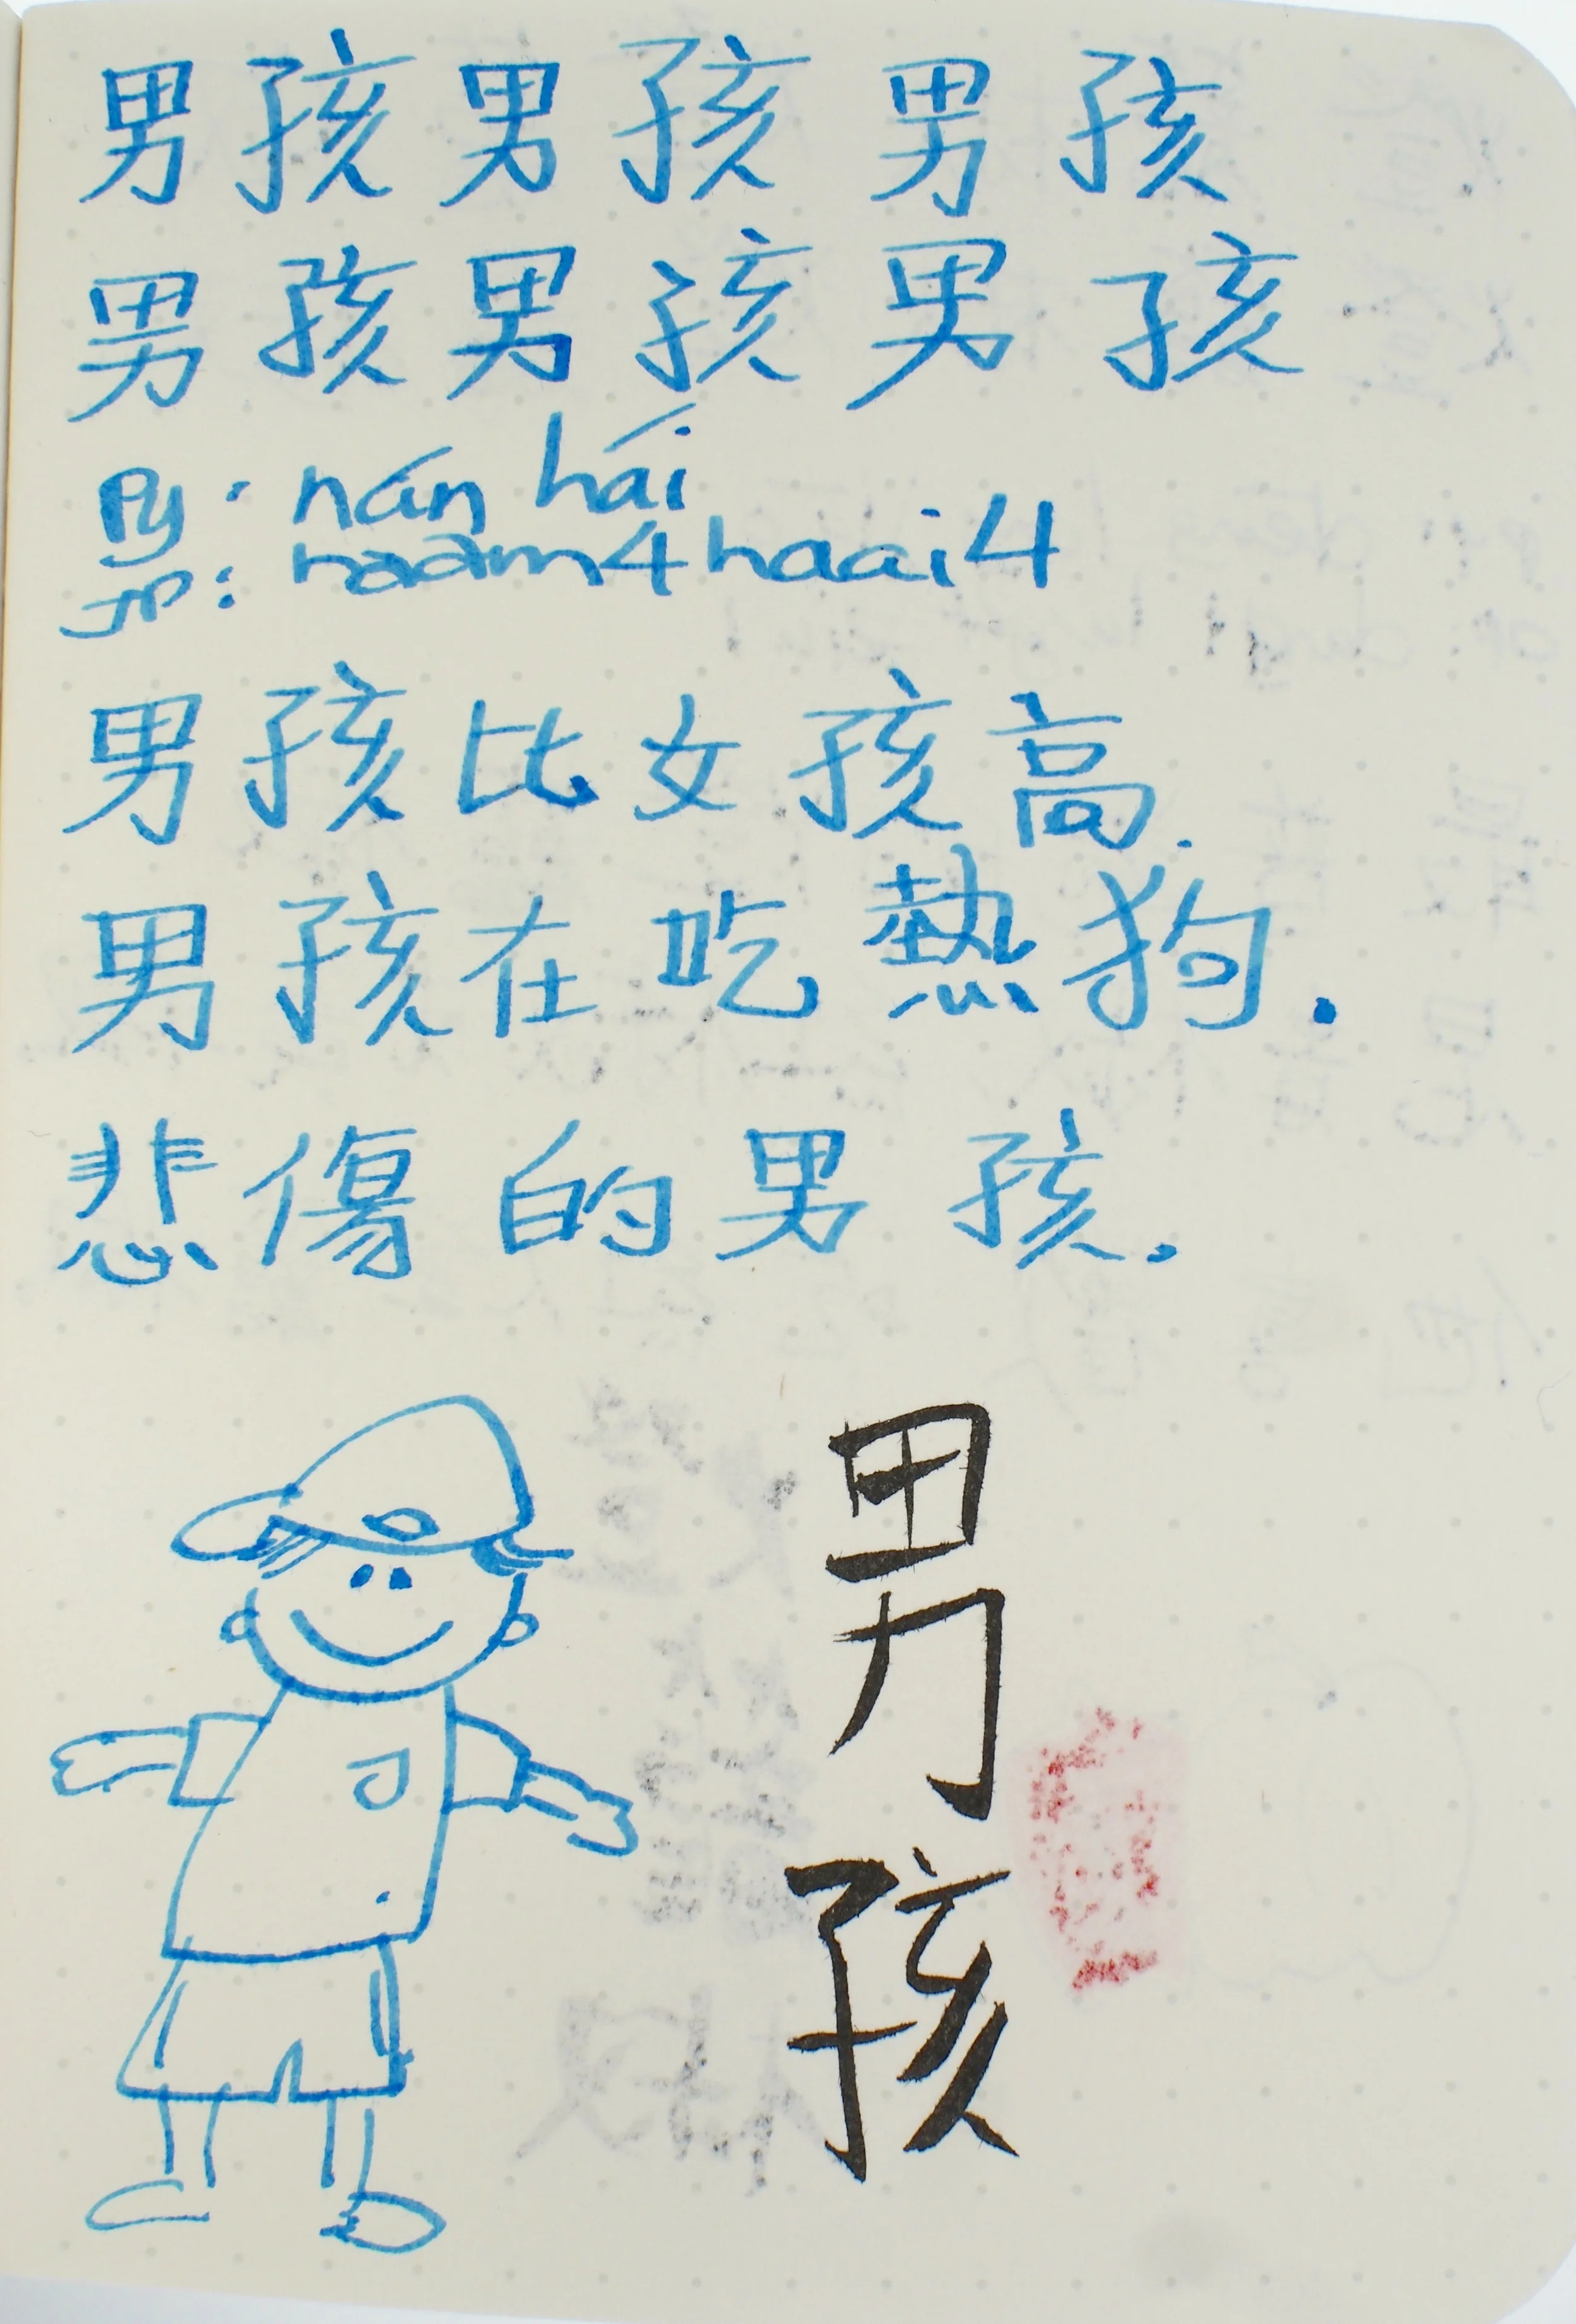 男孩男孩男孩
男孩男孩男孩
Py: nán hái
JP: naam4 haai4
男孩比女孩高.
男孩在吃熱狗.
悲傷的男孩.
男孩